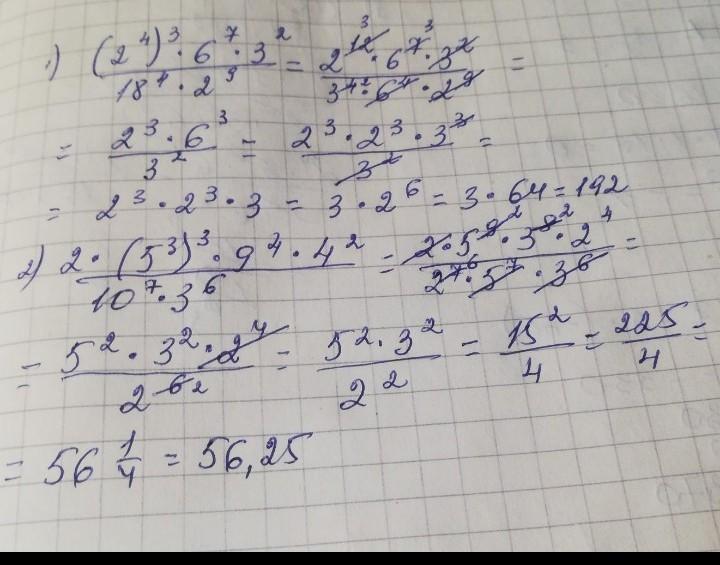 1) ((2^4)^3 · 6^7 · 3^2) / (18^4 · 2^9) = (2^12 3 · 6^7 3 · 3^2) / (3^4 2 · 6^4 · 2^9) =
= (2^3 · 6^3) / 3^2 = (2^3 · 2^3 · 3^3) / 3^2 =
= 2^3 · 2^3 · 3 = 3 · 2^6 = 3 · 64 = 192
2) (2 · (5^3)^3 · 9^4 · 4^2) / (10^7 · 3^6) = (2 · 5^9 2 · 3^8 2 · 2^4) / (2^7 6 · 5^7 · 3^6) =
= (5^2 · 3^2 · 2^4) / 2^6 2 = (5^2 · 3^2) / 2^2 = 15^2 / 4 = 225 / 4 =
= 56 1/4 = 56,25